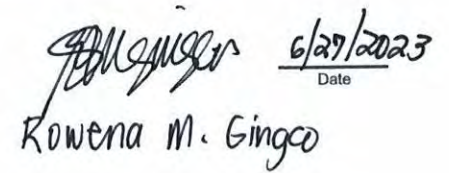 6/27/2023
Date
Rowena M. Gingco